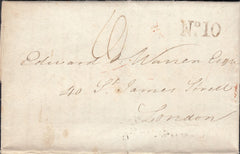 No. 10
Edward Warren Esqr
40 St. James Street
London